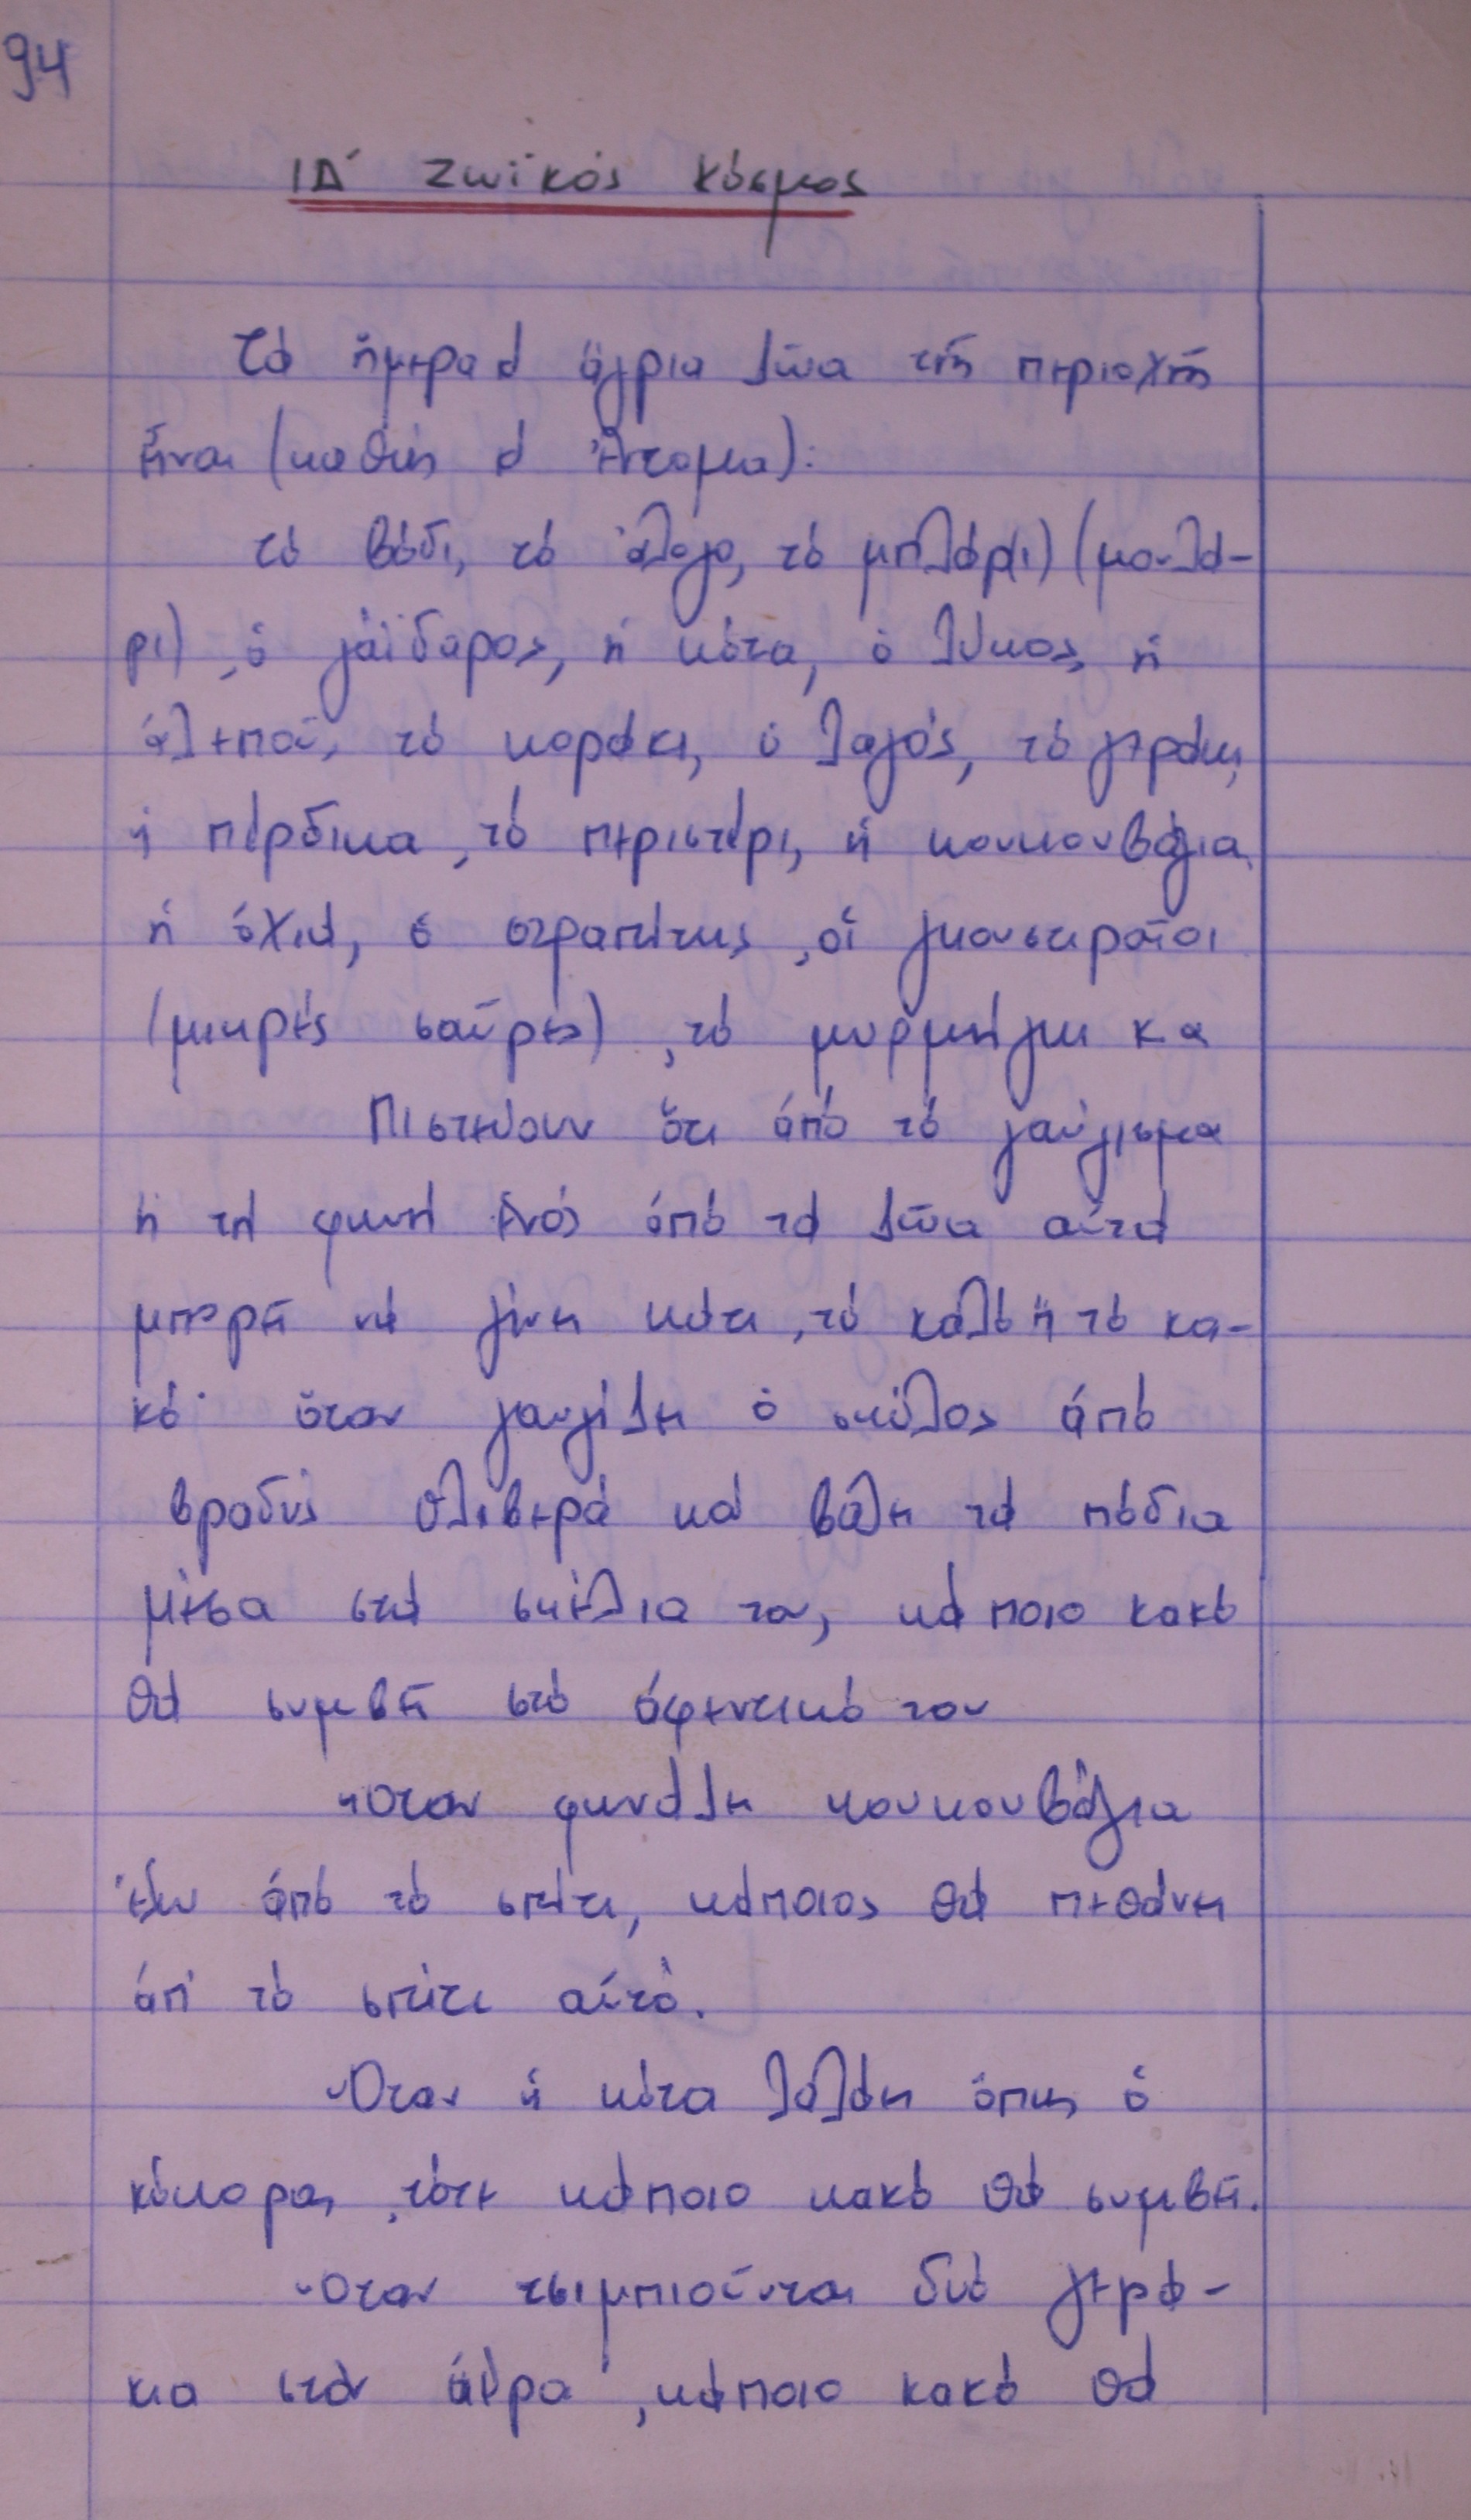 94
ΙΔ΄ Ζωϊκός Κόσμος
Τά ἥμερα ἄγρια ζῶα τῆς περιοχῆς
εἶναι (καθώς ἔντομα):
τό βόδι, τό ἄλογο, τό μπλάρι) (μουλά-
ρι), ὁ γάϊδαρος, ἡ κότα, ὁ λύκος, ἡ
ἀλεποῦ, τό κοράκι, ὁ λαγός, τό γεράκι,
ἡ πέρδικα, τό περιστέρι, ἡ κουκουβάγια,
ἡ ὄχιά, ὁ στραπίτης, οἱ γκουστεραῖοι
(μικρές σαῦρες), τό μυρμήγκι κ α
Πιστεύουν ὅτι ἀπό τό γαύγισμα
ἤ τή φωνή ἑνός ἀπό τά ζῶα αὐτά
μπορεῖ νά γίνει κάτι, τό καλό ἤ τό κα-
κό· ὅταν γαυγίζει ὁ σκύλος ἀπό
βραδύς θλιβερά καί βάλει τά πόδια
μέσα στά σκέλια του, κάποιο κακό
θά συμβεῖ στό ἀφεντικό του
Ὅταν φωνάζει κουκουβάγια
ἔξω ἀπό τό σπίτι, κάποιος θά πεθάνει
ἀπ' τό σπίτι αὐτό.
Ὅταν ἡ κότα λαλάει ὅπως ὁ
κόκορας, τότε κάποιο κακό θά συμβεῖ.
Ὅταν τσιμπιοῦνται δυό γερά-
κια στόν ἀέρα, κάποιο κακό θά